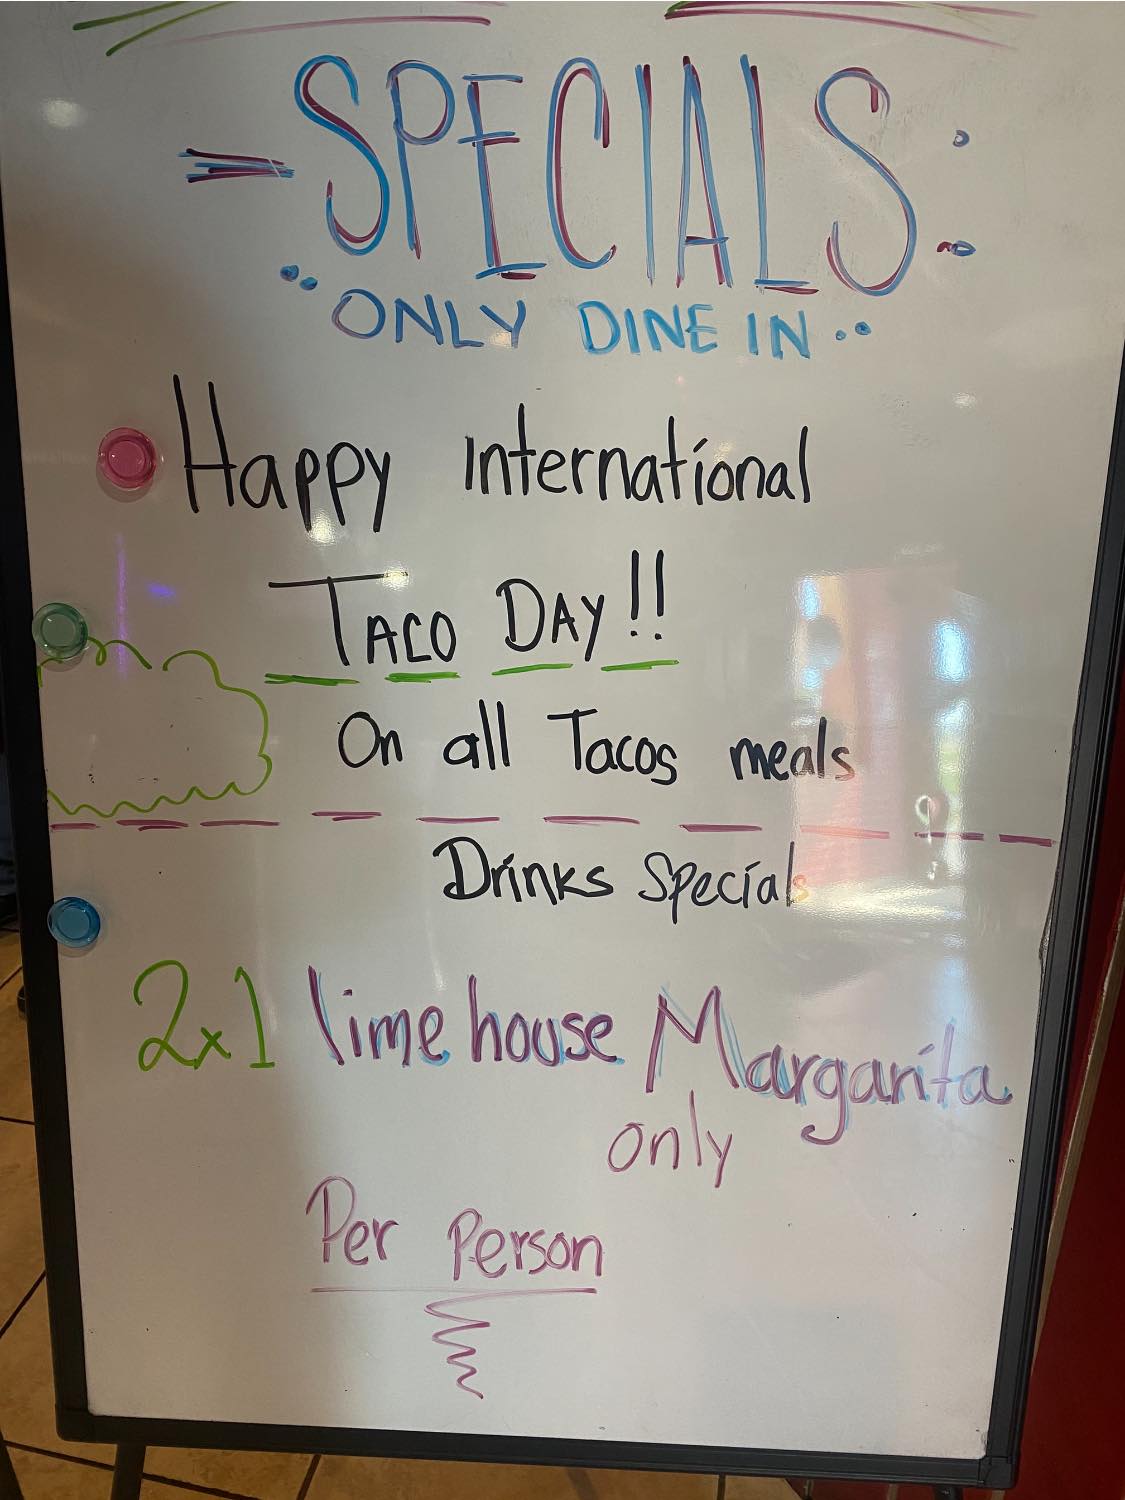 SPECIALS
ONLY DINE IN
Happy International
TACO DAY!!
On all Tacos meals
Drinks Specials
2x1 lime house Margarita
only
Per Person